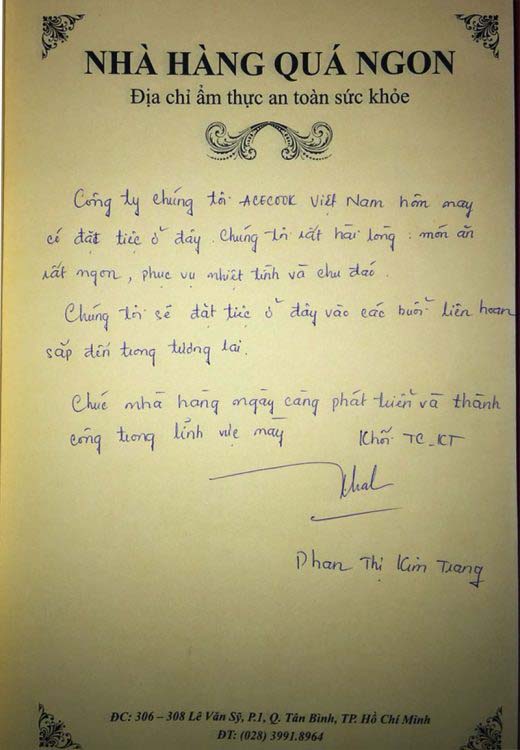 NHÀ HÀNG QUÁ NGON
Địa chỉ ẩm thực an toàn sức khỏe
Công ty chúng tôi ACECOOK Việt Nam hôm nay
có đặt tiệc ở đây. Chúng tôi rất hài lòng : món ăn
rất ngon, phục vụ nhiệt tình và chu đáo.
Chúng tôi sẽ đặt tiệc ở đây vào các buổi liên hoan
sắp đến trong tương lai.
Chúc nhà hàng ngày càng phát triển và thành
công trong lĩnh vực này
Khối TC_KT
Phan Thị Kim Trang
ĐC: 306 – 308 Lê Văn Sỹ, P.1, Q. Tân Bình, TP. Hồ Chí Minh
ĐT: (028) 3991.8964